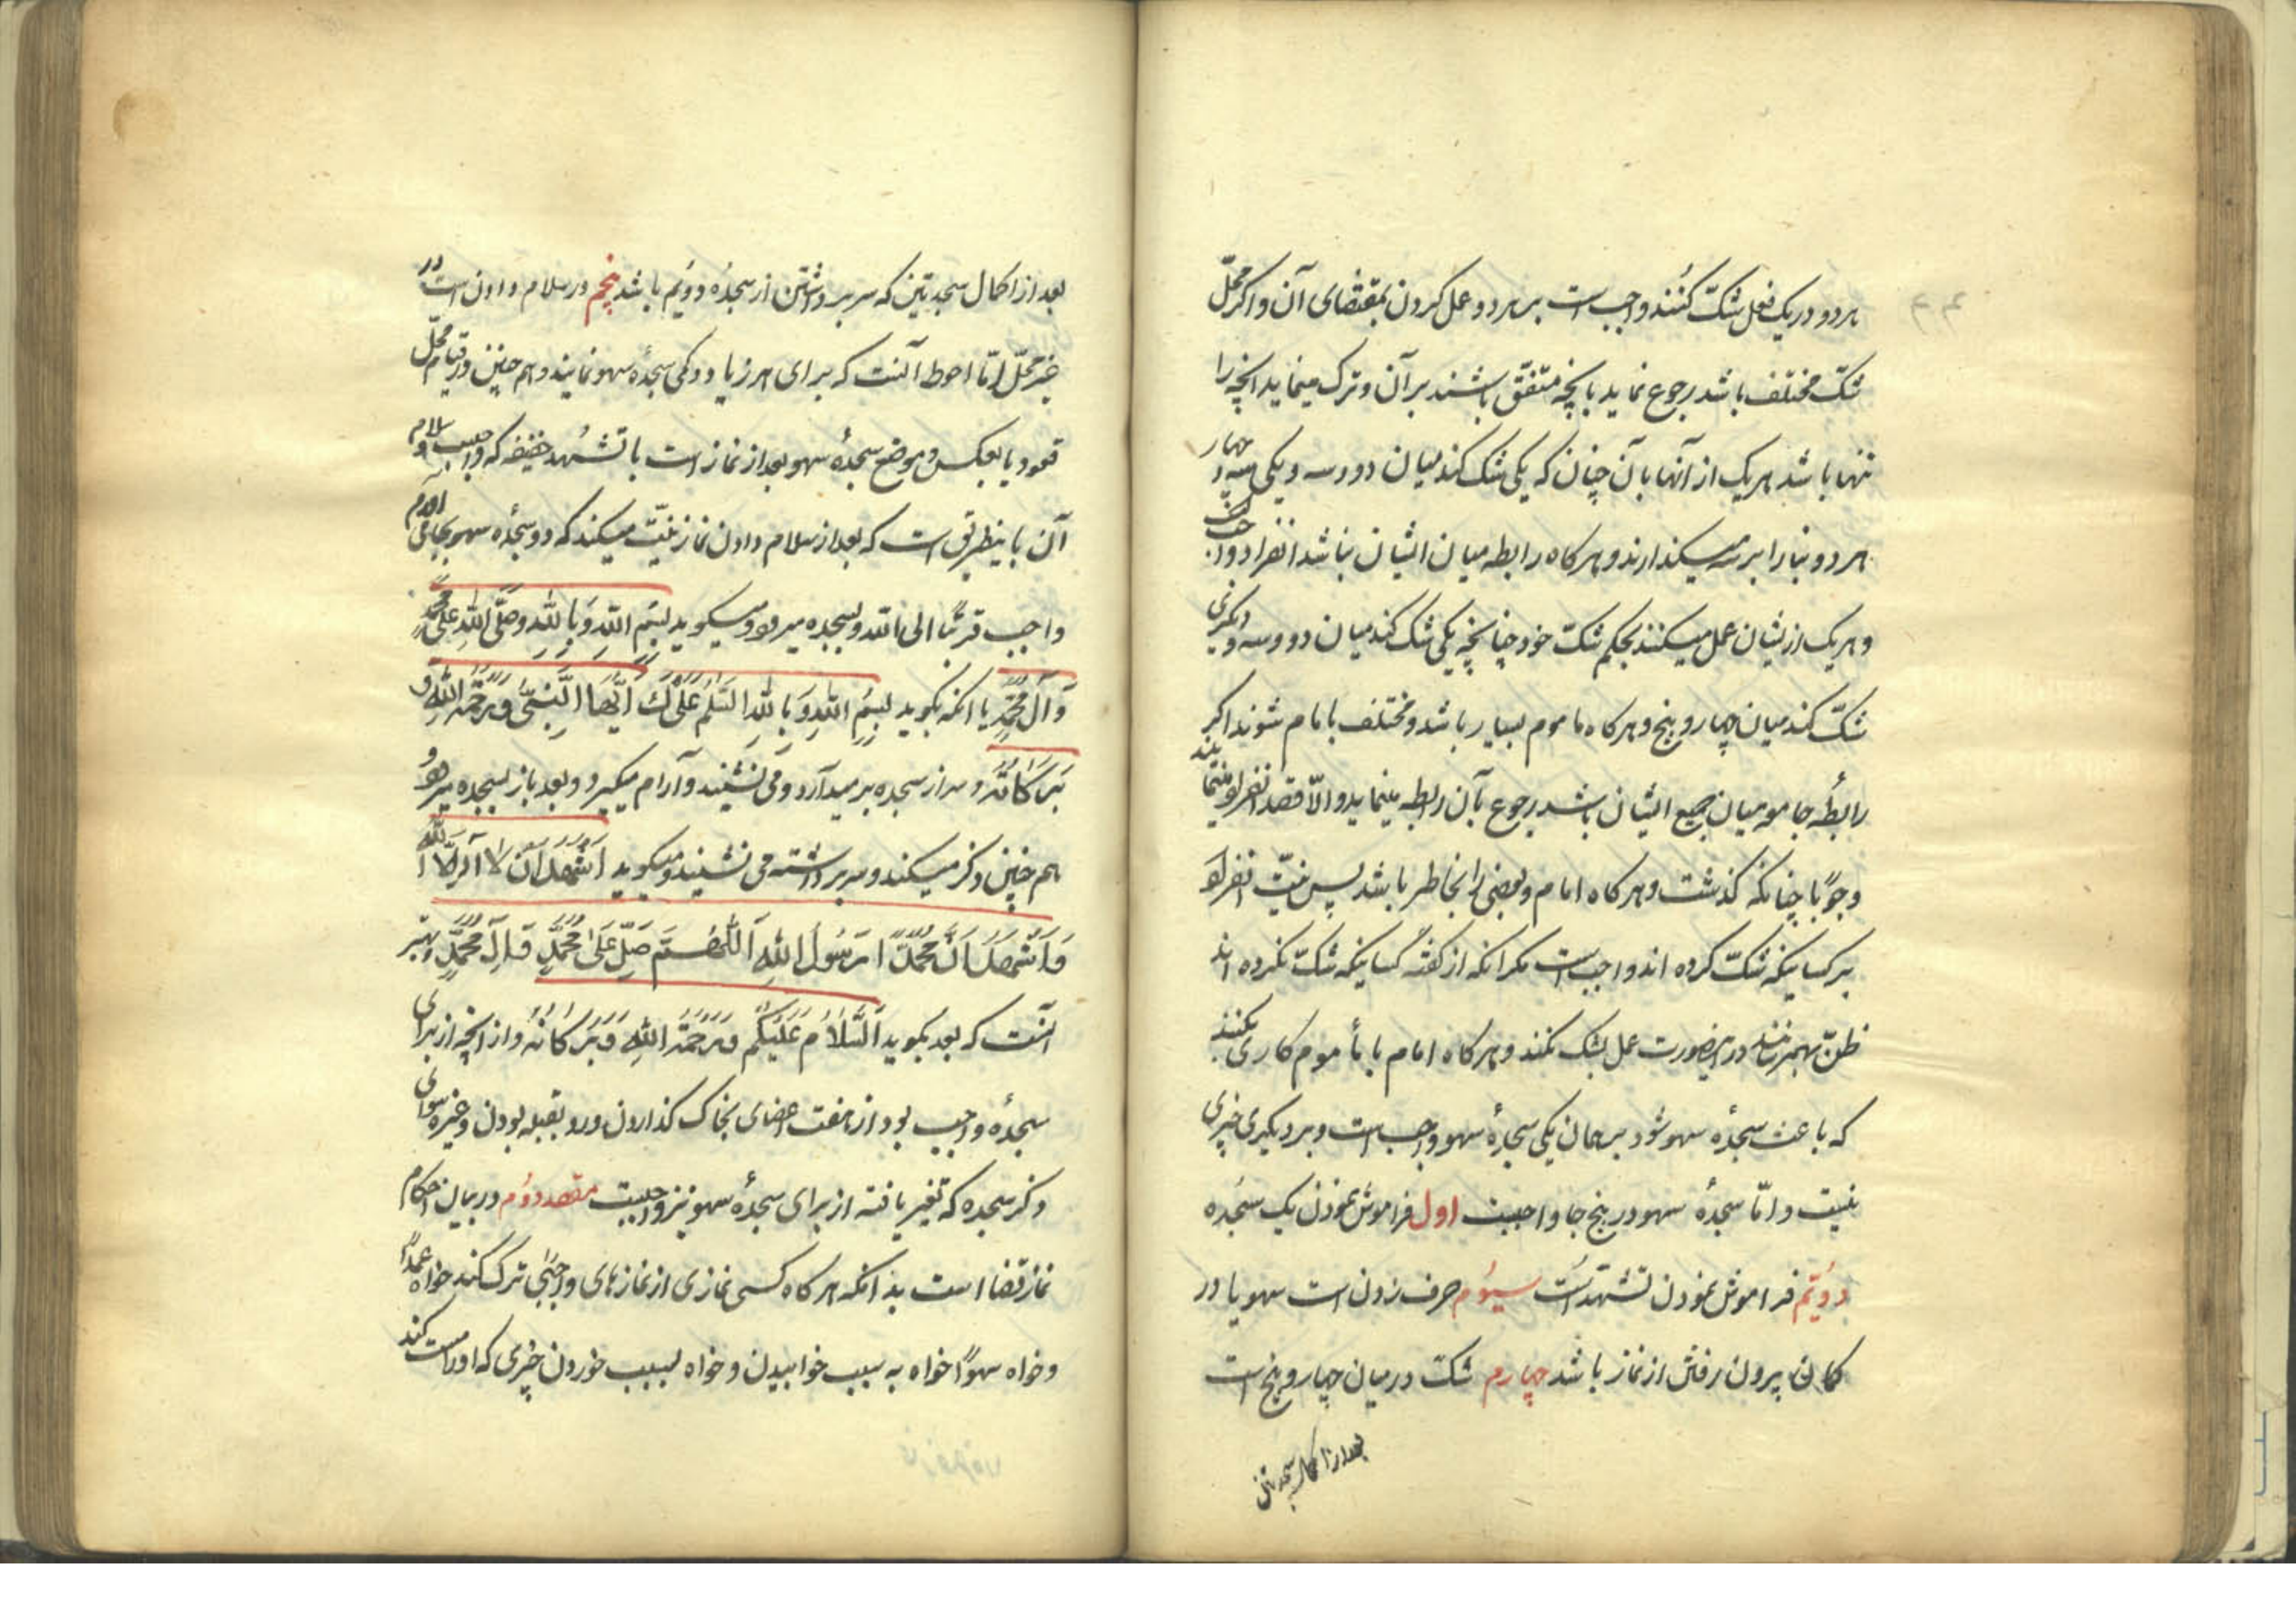 هر دو در یک فعل شک کنند واجب است بر هر دو عمل کردن بمقتضای آن و اکر محل
شک مختلف باشد رجوع نماید بانچه متفق باشند بر آن و ترک مینماید انچه را
تنها باشد هر یک از آنها بآن چنان که یکی شک کند میان دو و سه و یکی سه و چهار
هر دو بنا را بر سه میکذارند و هر کاه رابطه میان ایشان نباشد انفراد واجب است
و هر یک از یشان عمل میکنند بحکم شک خود چنانچه یکی شک کند میان دو و سه و دیکری
شک کند میان چهار و پنج و هر کاه ماموم بسیار باشد و مختلف با امام شوند اکر
رابطهٔ جامعه میان جمیع ایشان باشد رجوع بآن رابطه مینماید و الّا قصد انفراد مینمایند
وجوبًا چنانکه کذشت و هر کاه امام و بعضی را بخاطر باشد پس نیّت انفراد
بر کسانیکه شکّ کرده اند واجب است مکر انکه از کفتهٔ کسانیکه شکّ نکرده اند
ظنّ بهمرسانند در اینصورت عمل بشک نکنند و هر کاه امام یا مأموم کاری بکنند
که باعث سجدهٔ سهو شود بر همان یکی سجدهٔ سهو واجب است و بر دیکری چیزی
نیست و امّا سجدهٔ سهو در پنج جا واجبست اول فراموش نمودن یک سجده
دوّیم فراموش نمودن تشهّد است سیوم حرف زدن است سهو یا در
کمان بیرون رفتن از نماز باشد چهارم شکّ در میان چهار و پنج است
بعد از اکمال سجدتین
بعد از اکمال سجدتین که سر برداشتن از سجدهٔ دویم باشد پنجم در سلام دادن است در
غیر محلّ امّا احوط آنست که برای هر زیاد و کمی سجدهٔ سهو نمایند و هم چنین در قیام محلّ
قعود یا بعکس و موضع سجدهٔ سهو بعد از نماز است با تشهد خفیفه که واجب و سلام
آن باینطریق است که بعد از سلام دادن نماز نیّت میکند که دو سجدهٔ سهو بجای آورم
واجب قربةً الی الله و بسجده میرود و میکوید بِسْمِ اللهِ وَ بِاللهِ وَ صَلَّی اللهُ عَلی مُحَمَّدٍ
وَ آلِ مُحَمَّدٍ یا انکه بکوید بِسْمِ اللهِ وَ بِاللهِ السَّلامُ عَلَیْكَ اَیُّهَا النَّبِیُّ وَ رَحْمَةُ اللهِ وَ
بَرَكَاتُهُ و سر از سجده بر میدارد و می نشیند و آرام میکیرد و بعد باز بسجده میرود
هم چنین ذکر میکند و سر برداشته می نشیند و میکوید اَشْهَدُ اَنْ لا اِلهَ اِلَّا اللهُ
وَ اَشْهَدُ اَنَّ مُحَمَّدًا رَسُولُ اللهِ اَللّهُمَّ صَلِّ عَلیٰ مُحَمَّدٍ وَ آلِ مُحَمَّدٍ و بهتر
آنست که بعد بکوید اَلسَّلَامُ عَلَیْكُم وَ رَحْمَةُ اللهِ وَ بَرَكَاتُهُ و از انچه از برای
سجدهٔ واجب بود از هفت اعضای بخاک کذاردن و رو بقبله بودن و غیره سوای
ذکر سجده که تغیر یافته از برای سجدهٔ سهو نیز واجبست مقصد دوّم در بیان احکام
نماز قضا است بدانکه هر کاه کسی نمازی از نمازهای واجبی ترک کند خواه عمدًا
و خواه سهوًا خواه به سبب خوابیدن و خواه بسبب خوردن چیزی که او را مست کند